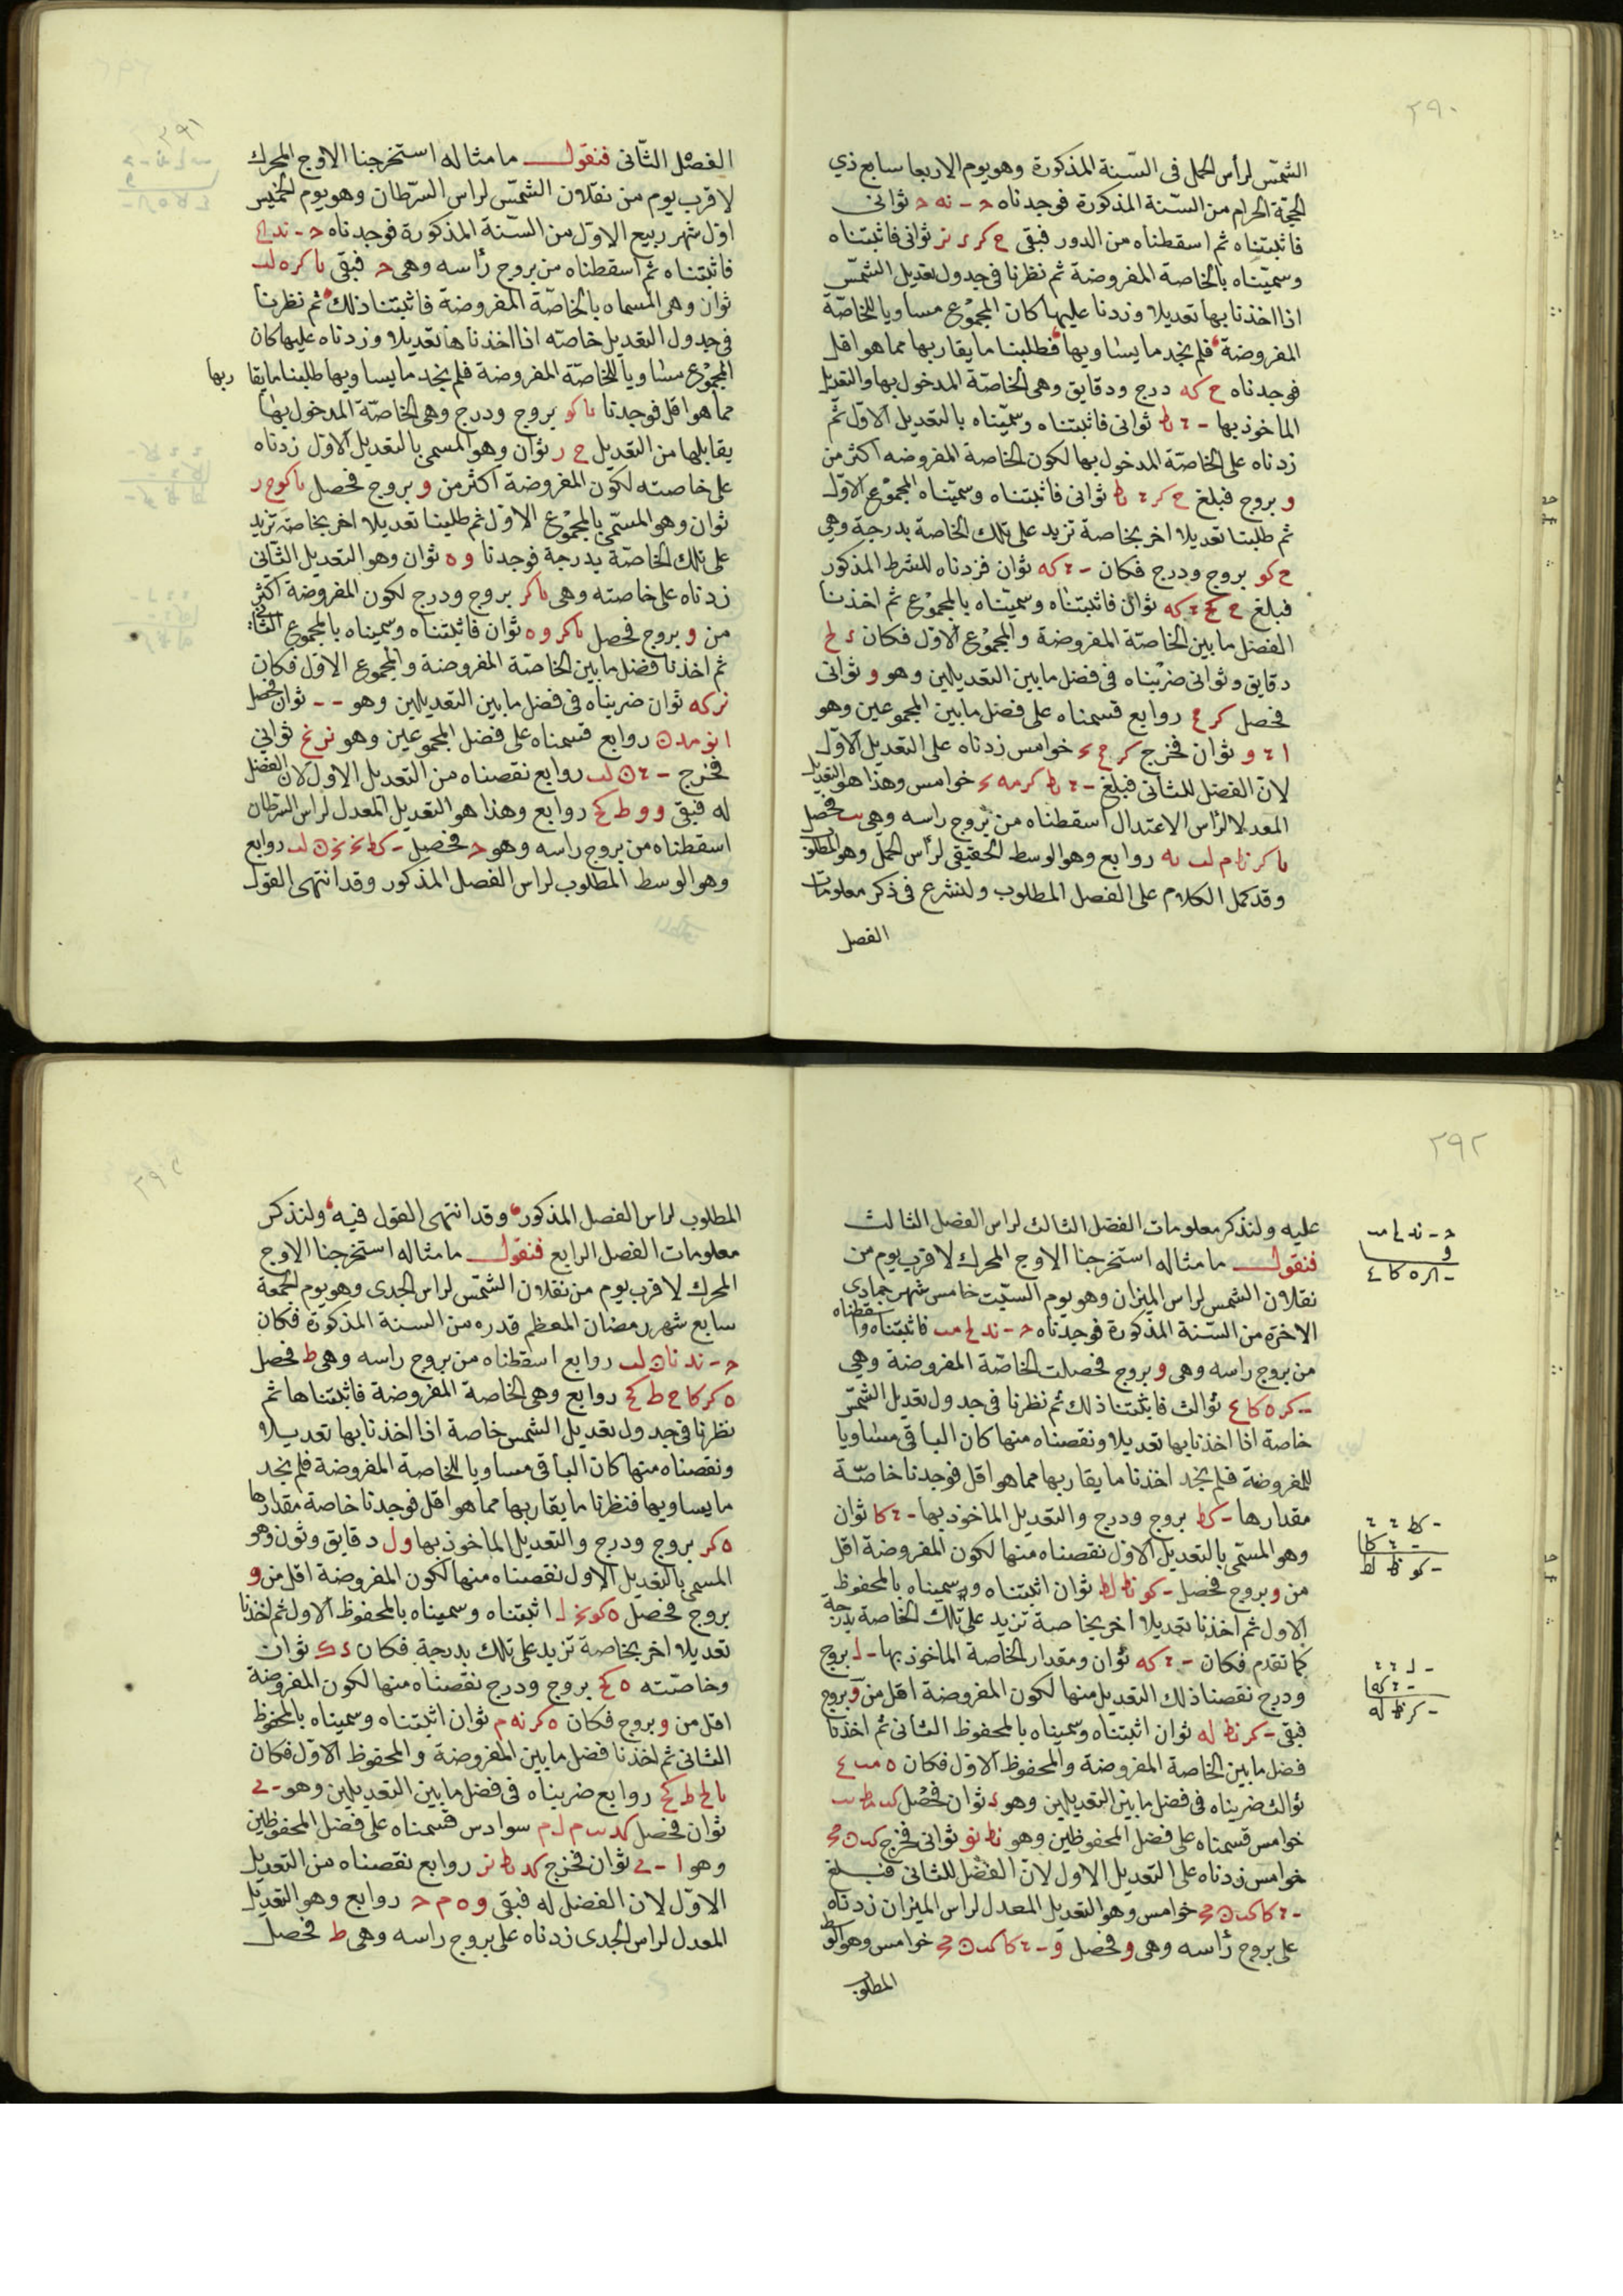 ٢٩٠
الشمس لرأس الحمل فى السنة المذكورة وهو يوم الاربعا سابع ذي
الحجة الحرام من السنة المذكورة فوجدناه ثوانى
فاثبتناه ثم اسقطناه من الدور فبقى ثوانى فاثبتناه
وسميناه بالخاصة المفروضة ثم نظرنا فى جدول تعديل الشمس
اذا اخذنا بها تعديلا وزدنا عليها كان المجموع مساويا للخاصة
المفروضة فلم نجد ما يساويها فطلبنا ما يقاربها مما هو اقل
فوجدناه ح كه درج ودقايق وهى الخاصة المدخول بها والتعديل
الماخوذ بها ثوانى فاثبتناه وسميناه بالتعديل الاول ثم
زدناه على الخاصة المدخول بها لكون الخاصة المفروضه اكثر من
و بروج فبلغ ثوانى فاثبتناه وسميناه المجموع الاول
ثم طلبنا تعديلا اخر بخاصة تزيد على تلك الخاصة بدرجة وهى
ح كو بروج ودرج فكان كه ثوان فزدناه للشرط المذكور
فبلغ كه ثوان فاثبتناه وسميناه بالمجموع ثم اخذنا
الفضل ما بين الخاصة المفروضة والمجموع الاول فكان
دقايق وثوانى ضربناه فى فضل ما بين التعديلين وهو و ثوانى
فحصل روابع قسمناه على فضل ما بين المجموعين وهو
ا و ثوان فخرج خوامس زدناه على التعديل الاول
لان الفضل للثانى فبلغ خوامس وهذا هو التعديل
المعدل لرأس الاعتدال اسقطناه من بروج راسه وهى فحصل
روابع وهو الوسط الحقيقى لرأس الحمل وهو المطلوب
وقد كمل الكلام على الفصل المطلوب ولنشرع فى ذكر معلومات
الفصل
٢٩١
الفصل الثانى فنقول ما مثاله استخرجنا الاوج المحرك
لاقرب يوم من نقلان الشمس لراس السرطان وهو يوم الخميس
اول شهر ربيع الاول من السنة المذكورة فوجدناه
فاثبتناه ثم اسقطناه من بروج رأسه وهى فبقى
ثوان وهى المسماه بالخاصة المفروضة فاثبتنا ذلك ثم نظرنا
فى جدول التعديل خاصته اذا اخذناها تعديلا وزدناه عليها كان
المجموع مساويا للخاصة المفروضة فلم نجد ما يساويها طلبنا ما يقا ربها
مما هو اقل فوجدنا كو بروج ودرج وهى الخاصة المدخول بها
يقابلها من التعديل ثوان وهو المسمى بالتعديل الاول زدناه
على خاصته لكون المفروضة اكثر من و بروج فحصل
ثوان وهو المسمى بالمجموع الاول ثم طلبنا تعديلا اخر بخاصة تزيد
على تلك الخاصة بدرجة فوجدنا و ه ثوان وهو التعديل الثانى
زدناه على خاصته وهى بروج ودرج لكون المفروضة اكثر
من و بروج فحصل ثوان فاثبتناه وسميناه بالمجموع الثانى
ثم اخذنا فضل ما بين الخاصة المفروضة والمجموع الاول فكان
ثوان ضربناه فى فضل ما بين التعديلين وهو ثوان فحصل
روابع قسمناه على فضل المجموعين وهو ثوانى
فخرج روابع نقصناه من التعديل الاول لان الفضل
له فبقى و و ط كح روابع وهذا هو التعديل المعدل لراس السرطان
اسقطناه من بروج راسه وهو فحصل روابع
وهو الوسط المطلوب لراس الفصل المذكور وقد انتهى القول
٢٩٢
عليه ولنذكر معلومات الفصل الثالث لراس الفصل الثالث
فنقول ما مثاله استخرجنا الاوج المحرك لاقرب يوم من
نقلان الشمس لراس الميزان وهو يوم السبت خامس شهر جمادى
الاخرة من السنة المذكورة فوجدناه فاثبتناه واسقطناه
من بروج راسه وهى و بروج فحصلت الخاصة المفروضة وهى
ثوالث فاثبتنا ذلك ثم نظرنا فى جدول تعديل الشمس
خاصة اذا اخذنا بها تعديلا ونقصناه منها كان الباقى مساويا
للمفروضة فلم نجد اخذنا ما يقاربها مما هو اقل فوجدنا خاصة
مقدارها كط بروج ودرج والتعديل الماخوذ بها كا ثوان
وهو المسمى بالتعديل الاول نقصناه منها لكون المفروضة اقل
من و بروج فحصل كو نط لط ثوان اثبتناه وسميناه بالمحفوظ
الاول ثم اخذنا تعديلا اخر بخاصة تزيد على تلك الخاصة بدرجة
كما تقدم فكان كه ثوان ومقدار الخاصة الماخوذ بها ل بروج
ودرج نقصنا ذلك التعديل منها لكون المفروضة اقل من و بروج
فبقى كر نط له ثوان اثبتناه وسميناه بالمحفوظ الثانى ثم اخذنا
فضل ما بين الخاصة المفروضة والمحفوظ الاول فكان
ثوالث ضربناه فى فضل ما بين التعديلين وهو ثوان فحصل
خوامس قسمناه على فضل المحفوظين وهو نط نو ثوانى فخرج
خوامس زدناه على التعديل الاول لان الفضل للثانى فبلغ
خوامس وهو التعديل المعدل لراس الميزان زدناه
على بروج رأسه وهى و فحصل خوامس وهو الوسط
المطلوب
المطلوب لراس الفصل المذكور وقد انتهى القول فيه ولنذكر
معلومات الفصل الرابع فنقول ما مثاله استخرجنا الاوج
المحرك لاقرب يوم من نقلان الشمس لراس الجدى وهو يوم الجمعة
سابع شهر رمضان المعظم قدره من السنة المذكورة فكان
روابع اسقطناه من بروج راسه وهى ط فحصل
ه كر كا ح ط كح روابع وهى الخاصة المفروضة فاثبتناها ثم
نظرنا فى جدول تعديل الشمس خاصة اذا اخذنا بها تعديلا
ونقصناه منها كان الباقى مساويا للخاصة المفروضة فلم نجد
ما يساويها فنظرنا ما يقاربها مما هو اقل فوجدنا خاصة مقدارها
ه كر بروج ودرج والتعديل الماخوذ بها و ل دقايق وثون وهو
المسمى بالتعديل الاول نقصناه منها لكون المفروضة اقل من و
بروج فحصل اثبتناه وسميناه بالمحفوظ الاول ثم اخذنا
تعديلا اخر بخاصة تزيد على تلك بدرجة فكان ثوان
وخاصته ه كح بروج ودرج نقصناه منها لكون المفروضة
اقل من و بروج فكان ه كر نه م ثوان اثبتناه وسميناه بالمحفوظ
الثانى ثم اخذنا فضل ما بين المفروضة والمحفوظ الاول فكان
روابع ضربناه فى فضل ما بين التعديلين وهو
ثوان فحصل سوادس قسمناه على فضل المحفوظين
وهو ثوان فخرج روابع نقصناه من التعديل
الاول لان الفضل له فبقى روابع وهو التعديل
المعدل لراس الجدى زدناه على بروج راسه وهى ط فحصل